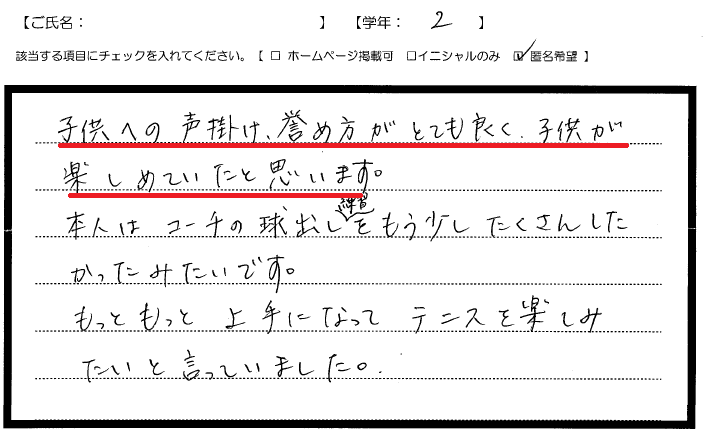 【ご氏名： 】 【学年： 2 】
該当する項目にチェックを入れてください。【 □ ホームページ掲載可 □イニシャルのみ ☑ 匿名希望 】
子供への声掛け、誉め方がとても良く、子供が
楽しめていたと思います。
本人はコーチの球出し練習をもう少したくさんした
かったみたいです。
もっともっと上手になってテニスを楽しみ
たいと言っていました。